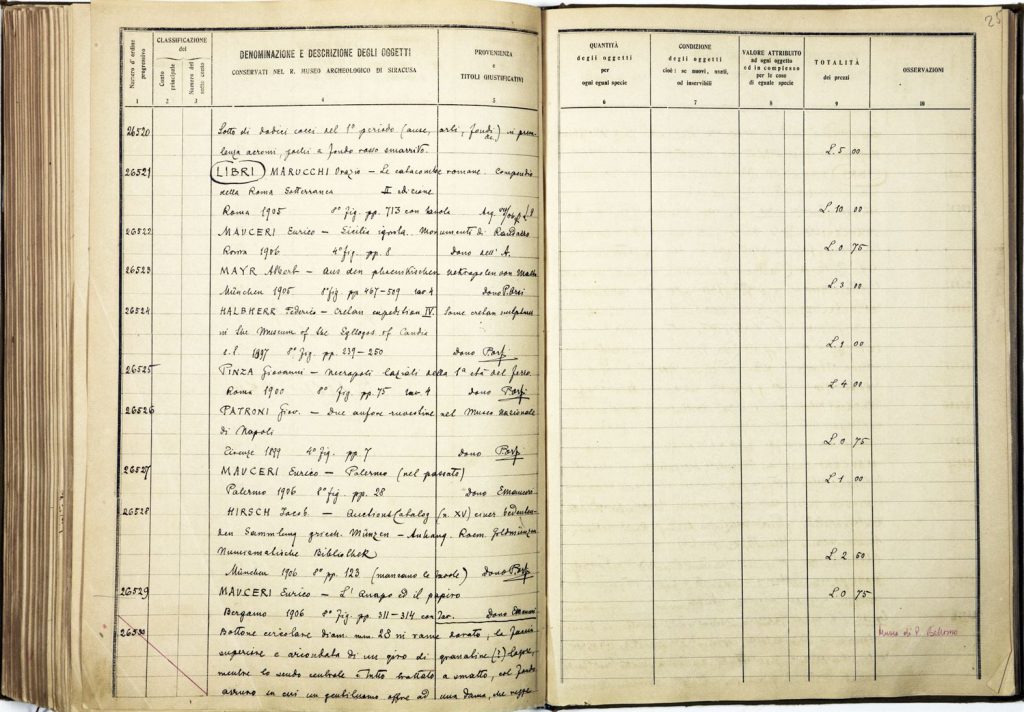 25
Numero d'ordine progressivo
CLASSIFICAZIONE
del
Conto principale
Numero del sotto conto
DENOMINAZIONE E DESCRIZIONE DEGLI OGGETTI
CONSERVATI NEL R. MUSEO ARCHEOLOGICO DI SIRACUSA
PROVENIENZA
e
TITOLI GIUSTIFICATIVI
QUANTITÀ
degli oggetti
per
ogni egual specie
CONDIZIONE
degli oggetti
cioè: se nuovi, usati,
od inservibili
VALORE ATTRIBUITO
ad ogni oggetto
ed in complesso
per le cose
di eguale specie
TOTALITÀ
dei prezzi
OSSERVAZIONI
1 2 3 4 5 6 7 8 9 10
26520 Lotto di dodici cocci del 1° periodo (anse, orli, fondi
lenza aeromi, pochi a fondo rosso smarrito. L. 5 00
26521 LIBRI MARUCCHI Orazio – Le catacombe romane. Compendio
della Roma Sotterranea II edizione
Roma 1905 8° fig. pp. 713 con tavole L. 10 00
26522 MAUCERI Enrico – Sicilia ignota. Monumenti di Randazzo
Roma 1906 4° fig. pp. 8 Dono dell'A. L. 0 75
26523 MAYR Albert – Aus den phoenikischen nekropolen von Malta
München 1905 8° fig. pp. 467–509 tav. 4 Dono P. Orsi L. 3 00
26524 HALBHERR Federico – Cretan expedition IV. Some cretan sculptures
in the Museum of the Syllogos of Candia
s. l. 1897 8° fig. pp. 239–250 Dono P. Orsi L. 1 00
26525 PINZA Giovanni – Necropoli laziali della 1ª età del ferro
Roma 1900 8° fig. pp. 75 tav. 4 dono P. Orsi L. 4 00
26526 PATRONI Giov. – Due anfore ruvestine nel Museo Nazionale
di Napoli
Firenze 1899 4° fig. pp. 7 dono P. Orsi L. 0 75
26527 MAUCERI Enrico – Palermo (nel passato)
Palermo 1906 8° fig. pp. 28 Dono L. 1 00
26528 HIRSCH Jacob – Auctions Catalog (n. XV) einer bedeuten-
den Sammlung griech. Münzen – Anhang. Roem. Goldmünzen
Numismatische Bibliothek
München 1906 8° pp. 123 (mancano le tavole) Dono P. Orsi L. 2 50
26529 MAUCERI Enrico – L'Anapo ed il papiro
Bergamo 1906 8° fig. pp. 311–314 con Tav. Dono L. 0 75
26530 Bottone circolare diam. mm. 23 in rame dorato, la faccia
superiore è circondata di un giro di granatine (?)
mentre lo scudo centrale è tutto trattato a smalto, col fondo
azzurro in cui un gentiluomo offre ad una dama, che
Museo di P. Bellomo